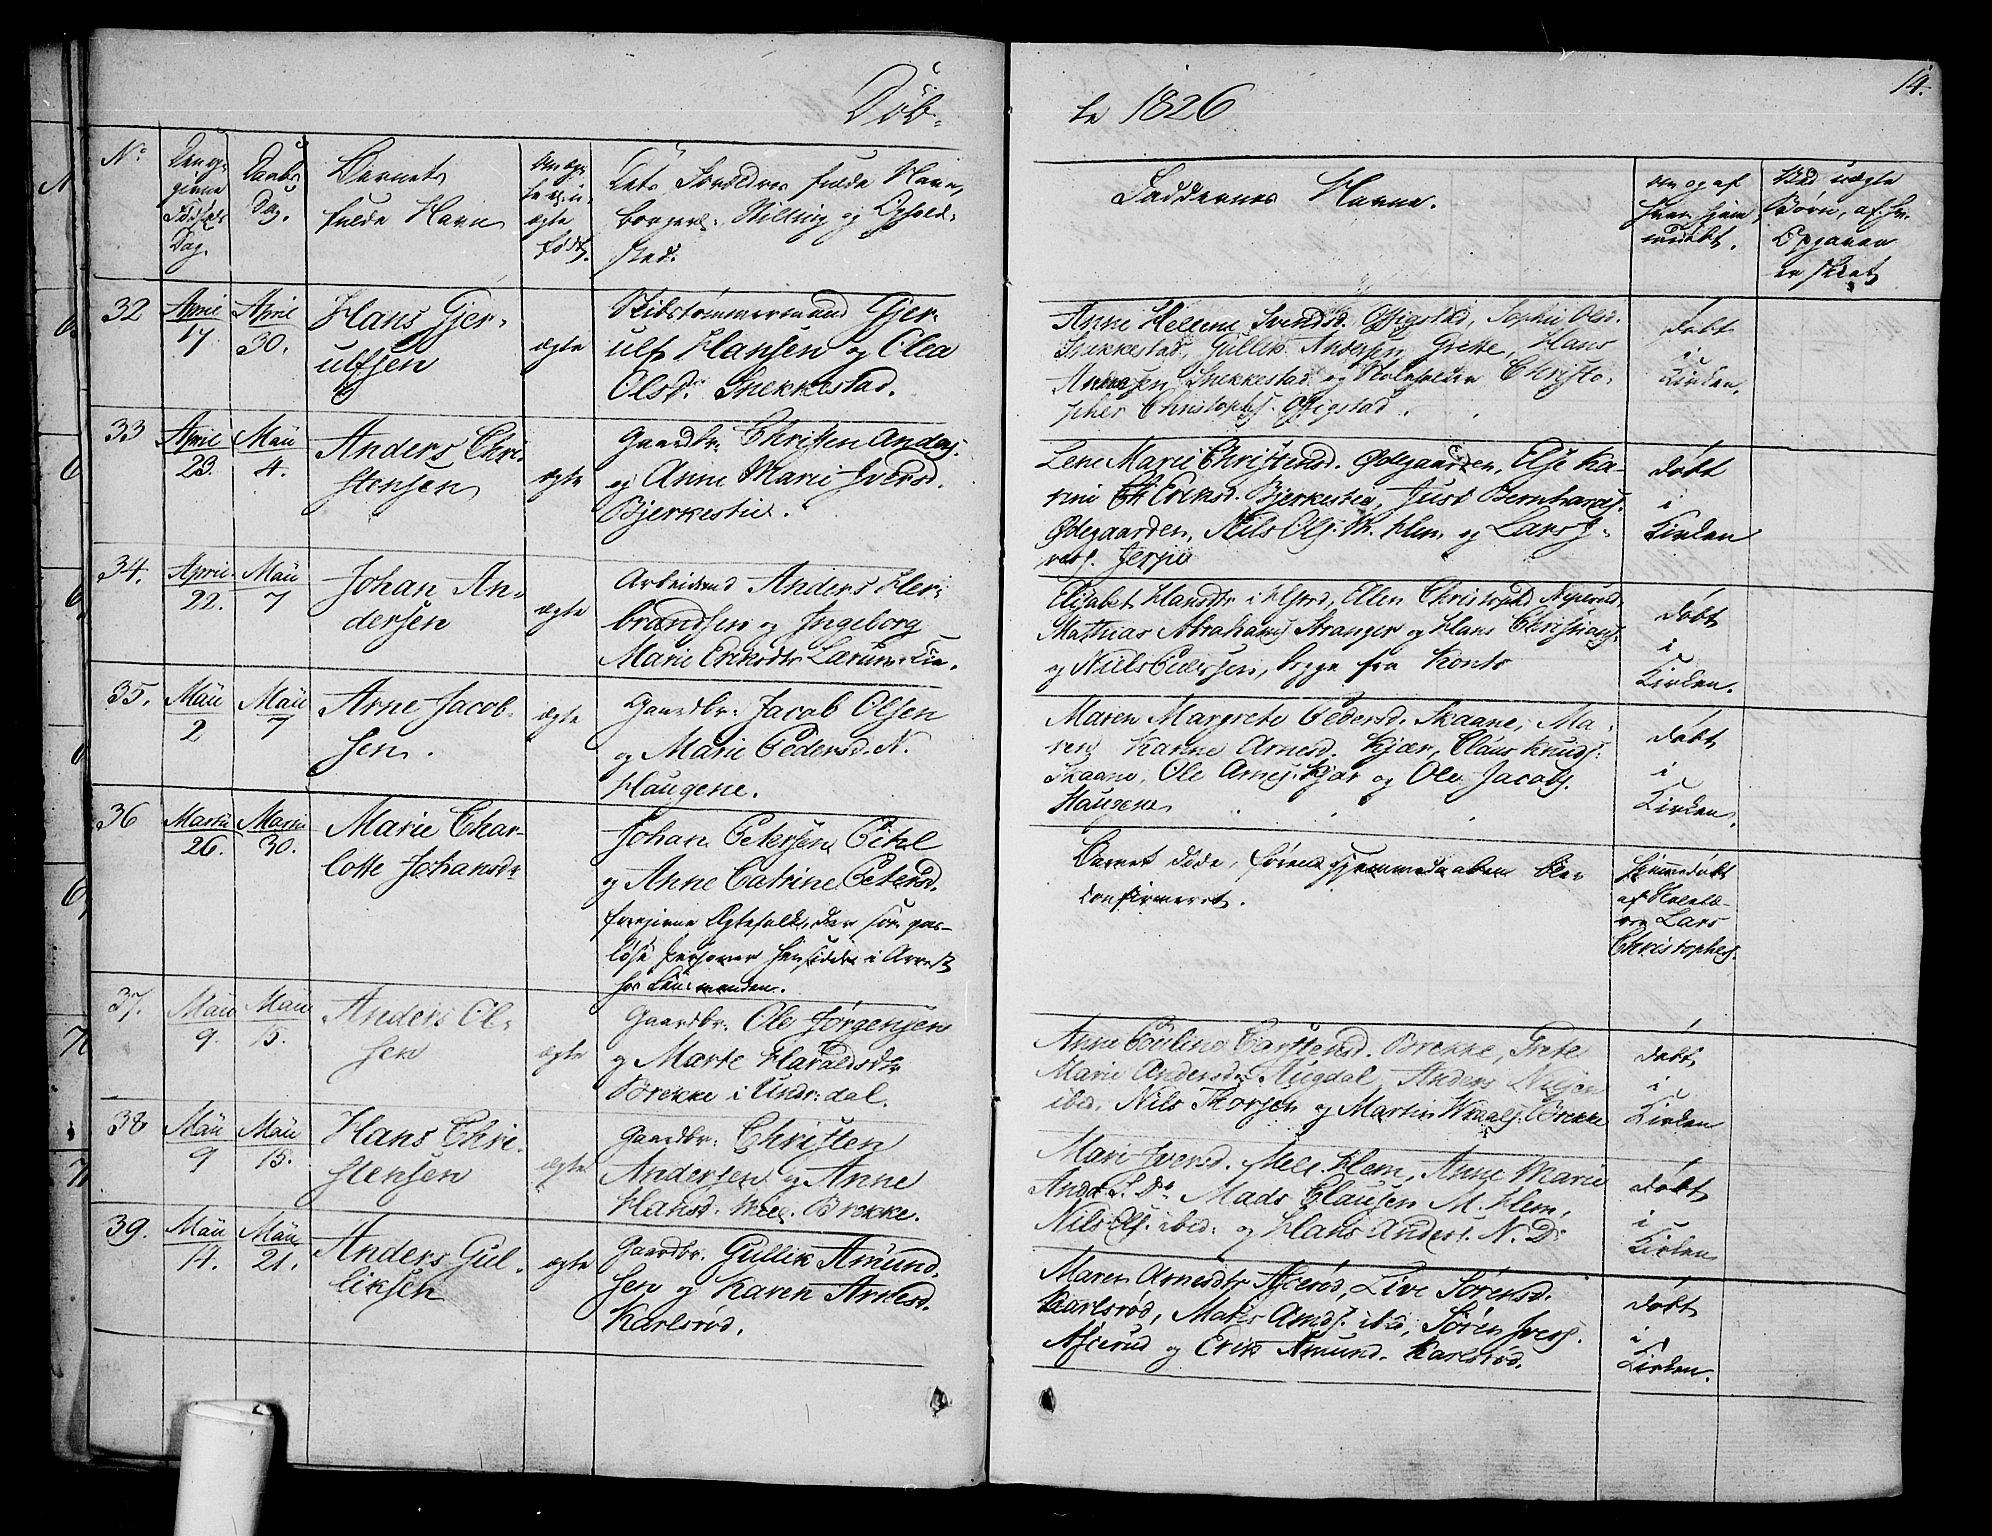 Døb-
te 1826
14.
No
Den op-
givne
Fødsels
Dag.
Daabs
Dag.
Barnets
fulde Navn
Om æg-
te el. u-
ægte
født.
Dets Forældres fulde Navn,
borgerl: Stilling og Ophold-
sted.
Faddernes Navne.
Om og af
hvem hjem-
medøbt.
Ved uægte
Børn, af hv.
Opgaven
er skeet
32
April
17
April
30.
Hans Gjer-
ulfsen
ægte
Skibstømmermand Gjer-
ulf Hansen og Olea
Olsd. Snekkestad.
Anne Hellene Svendsd. Sophie Olsd.
Snekkestad, Gullik Andersen Grette, Hans
Andersen Snekkestad og Christo-
pher Christophs.
døbt
i
Kirken.
33
April
23.
Maii
4.
Anders Chri-
stensen
ægte
Gaardbr. Christen Anders.
og Anne Marie Iversd.
Bjerkestie.
Lene Marie Christensd. Ødegaarden, Else Ka-
rine Eriksd. Bjerkestie, Just Bernhards.
Ødegaarden, Nils Ols. M. Hem og Lars I-
vers. Jerpø
døbt
i
Kirken
34.
April
22.
Maii
7
Johan An-
dersen
ægte
Arbeidsmd Anders Her-
brandsen og Ingeborg
Marie Eriksdtr
Elisabet Hansdtr i Ellen Christophd.
Mathias Abrahams. Stranger og Hans Christians.
og Niels Pedersen, begge fra
døbt
i
Kirken.
35.
Maii
2
Maii
7
Arne Jacob-
sen.
ægte
Gaardbr. Jacob Olsen
og Marie Pedersd. N.
Haugene.
Maren Margrete Pedersd. Skaane, Ma-
ren Kanne Arnesd. Kjær, Claus Knuds.
Skaane, Ole Arnes. Kjær og Ole Jacobs.
Haugene
døbt
i
Kirken.
36
Martii
26.
Martii
30.
Marie Char-
lotte Johansdr
Johan Petersen
og Anne Catrine Petersd.
foregivne Ægtefolk, der som pas-
løse Personer hensidder i Arrest
hos Lensmanden.
Barnet døde, førend Hjemmedaaben blev
confirmeret.
hjemmedøbt
af Skolelæ-
rer Lars
Christophers.
37.
Maii
9.
Maii
15.
Anders Ol-
sen
ægte
Gaardbr. Ole Jørgensen
og Marte Haraldsdr
Brekke i Undr:dal.
Anne Carstensd. Brekke, Grete
Marie Andersdr Augdal, Anders Nilsen
ibid. Nils Thorsen og Martin Brekke
døbt
i
Kirken
38
Maii
9
Maii
15.
Hans Chri-
stensen
ægte
Gaardbr. Christen
Andersen og Anne
Hansd. Mel. Brekke.
Mari Iversd. Mel. Hem, Anne Marie
Mads Clausen M. Hem,
Nils Ols. ibid: og Hans Anders. N. Do
døbt
i
Kirken
39.
Maii
14.
Maii
21.
Anders Gul-
liksen
ægte
Gaardbr. Gullik Amund-
sen og Karen Arnesd.
Karlsrød.
Maren Arnesdtr Live Sørensd.
Karlsrød, ibid, Søren Ivers.
og Erik Amund. Karlsrød.
døbt
i
Kirken.